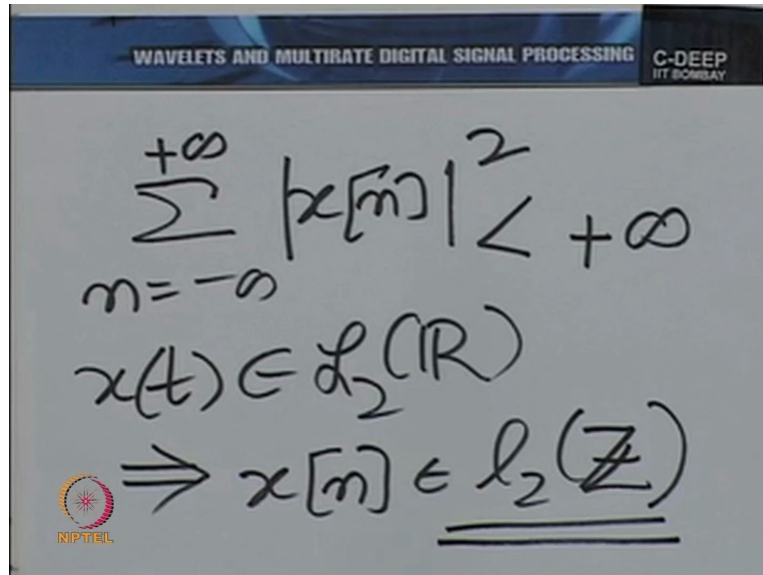 WAVELETS AND MULTIRATE DIGITAL SIGNAL PROCESSING
C-DEEP
IIT BOMBAY
+∞
Σ |x[n]|² < +∞
n=-∞
x(t) ∈ ℒ₂(ℝ)
⇒ x[n] ∈ l₂(ℤ)
NPTEL